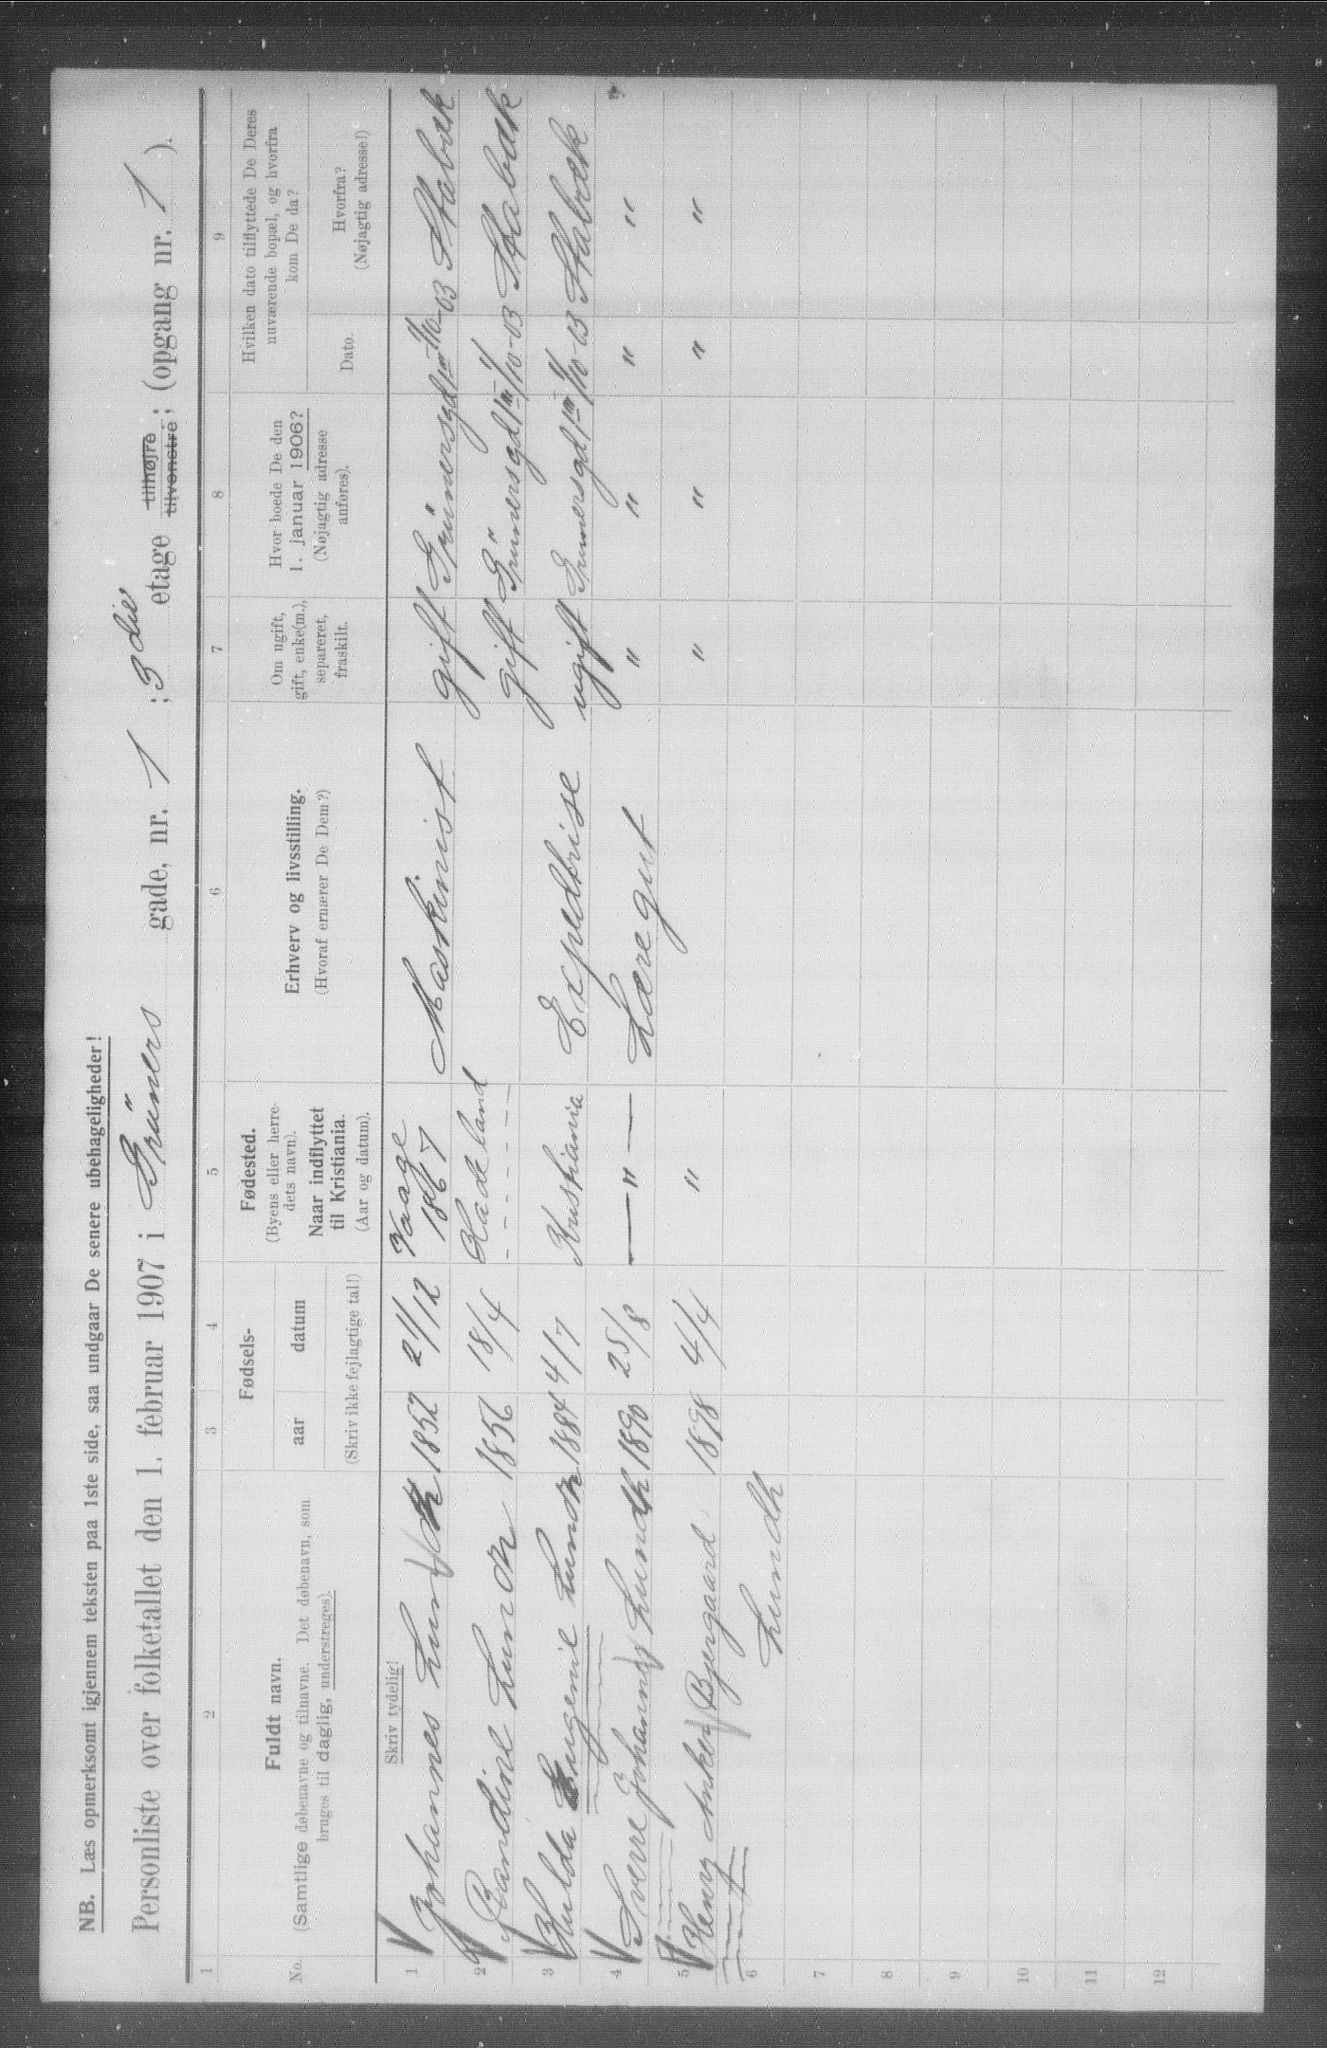 NB. Læs opmerksomt igjennem teksten paa 1ste side, saa undgaar De senere ubehageligheder!
Personliste over folketallet den 1. februar 1907 i Grüners gade, nr. 1 ; 3die etage tilhøjre tilvenstre ; (opgang nr. 1 ).
1 2 3 4 5 6 7 8 9
No.
Fuldt navn.
(Samtlige døbenavne og tilnavne. Det døbenavn, som
bruges til daglig, understreges).
Skriv tydelig!
Fødsels-
aar datum
(Skriv ikke fejlagtige tal!)
Fødested.
(Byens eller herre-
dets navn).
Naar indflyttet
til Kristiania.
(Aar og datum).
Erhverv og livsstilling.
(Hvoraf ernærer De Dem?)
Om ugift,
gift, enke(m.),
separeret,
fraskilt.
Hvor boede De den
1. januar 1906?
(Nøjagtig adresse
anføres).
Hvilken dato tilflyttede De Deres
nuværende bopæl, og hvorfra
kom De da?
Dato.
Hvorfra?
(Nøjagtig adresse!)
1 Johannes Lundh 1852 21/12 Vaage 1867 Maskinist gift Grünersgd 1 1/10-03 Stabæk
2 Pandine Lundh 1856 18/4 Hadeland gift Grünersgd 1 1/10-03 Stabæk
3 Hulda Eugenie Lundh 1884 4/7 Kristiania Expeditrise ugift Grunersgd 1 1/10-03 Stabæk
4 Sverre Johannes Lundh 1890 25/8 — " — Læregut " " " "
5 Henry Anker Bjergaard 1898 4/4 " " " " "
6 Lundh
7
8
9
10
11
12